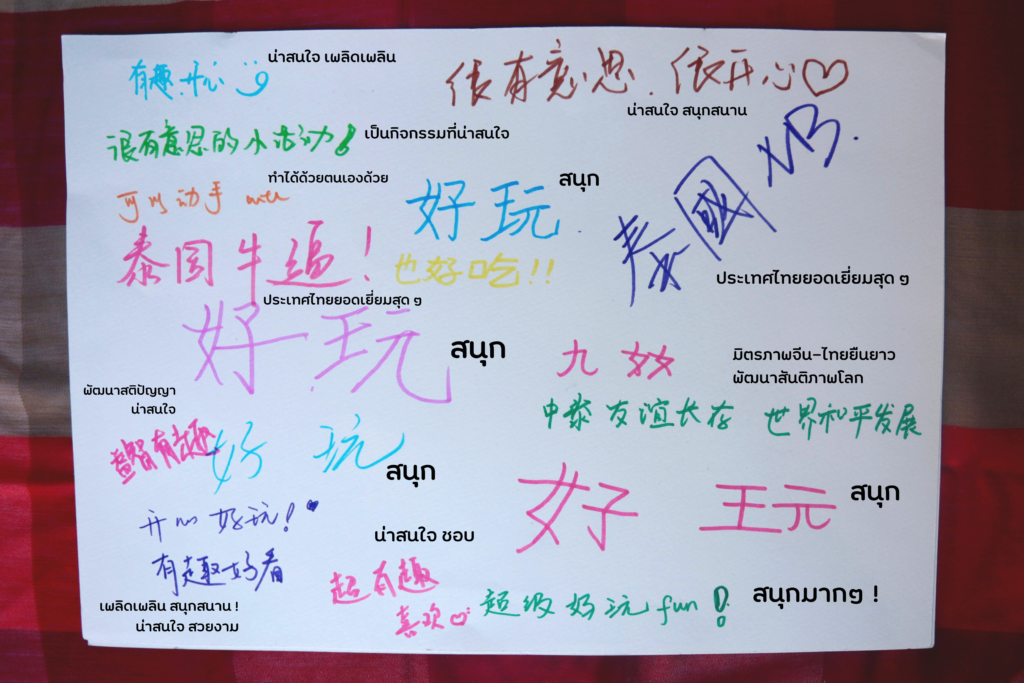 有趣.开心
น่าสนใจ เพลิดเพลิน
很有意思.很开心♡
น่าสนใจ สนุกสนาน
很有意思的小活动!
เป็นกิจกรรมที่น่าสนใจ
可以动手
ทำได้ด้วยตนเองด้วย
好玩
สนุก
泰國 NB.
ประเทศไทยยอดเยี่ยมสุด ๆ
泰国牛逼!
ประเทศไทยยอดเยี่ยมสุด ๆ
也好吃!!
好玩
สนุก
มิตรภาพจีน-ไทยยืนยาว
พัฒนาสันติภาพโลก
中泰友谊长存 世界和平发展
พัฒนาสติปัญญา
น่าสนใจ
益智有趣
好玩
สนุก
好玩
สนุก
开心好玩!
有趣好看
เพลิดเพลิน สนุกสนาน !
น่าสนใจ สวยงาม
น่าสนใจ ชอบ
超有趣
喜欢♡
超级好玩 fun!
สนุกมากๆ !